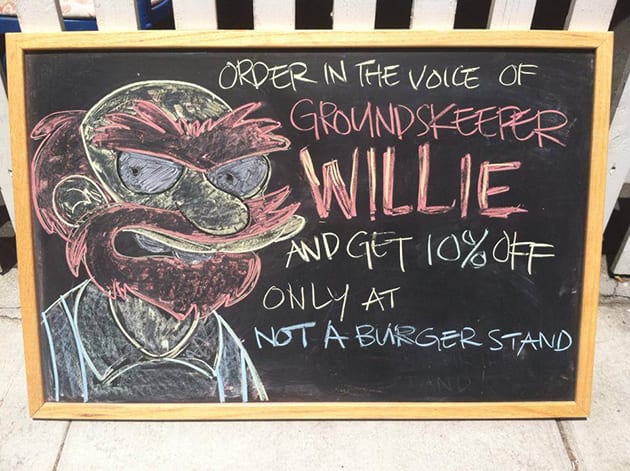 ORDER IN THE VOICE OF
GROUNDSKEEPER
WILLIE
AND GET 10% OFF
ONLY AT
NOT A BURGER STAND
TAND